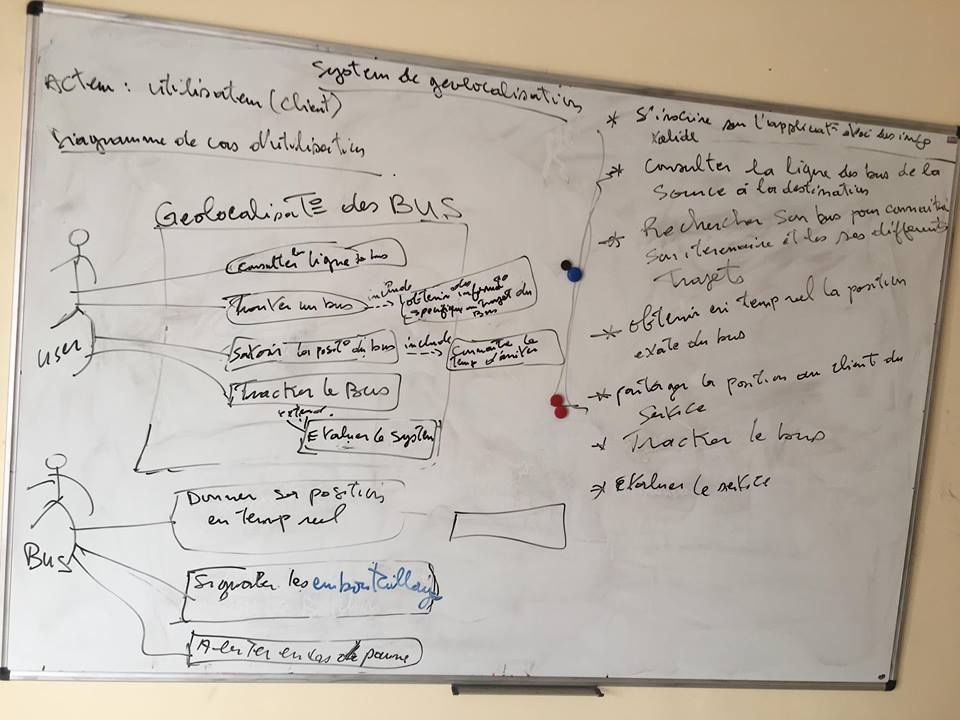 System de geolocalisation
Acteur : utilisateur (client)
Diagramme de cas d'utilisation
Geolocalisat° des BUS
consulter la ligne de bus
Trouver un bus
include
obtenir des informat°
specifique Trajet du
Bus
Savoir la posit° du bus
include
Connaitre le
temp d'arriver
Tracker le Bus
extend
Evaluer le system
user
Donner sa position
en temp reel
Bus
Signaler les embouteillage
Alerter en cas de panne
* S'inscrire sur l'applicat° avec des info
valide
* Consulter la ligne des bus de la
source à la destination
* Rechercher son bus pour connaitre
son iterenaire et les ses differents
Trajets
* obtenir en temp reel la position
exate du bus
* partager la position au client du
service
* Tracker le bus
* Evaluer le service